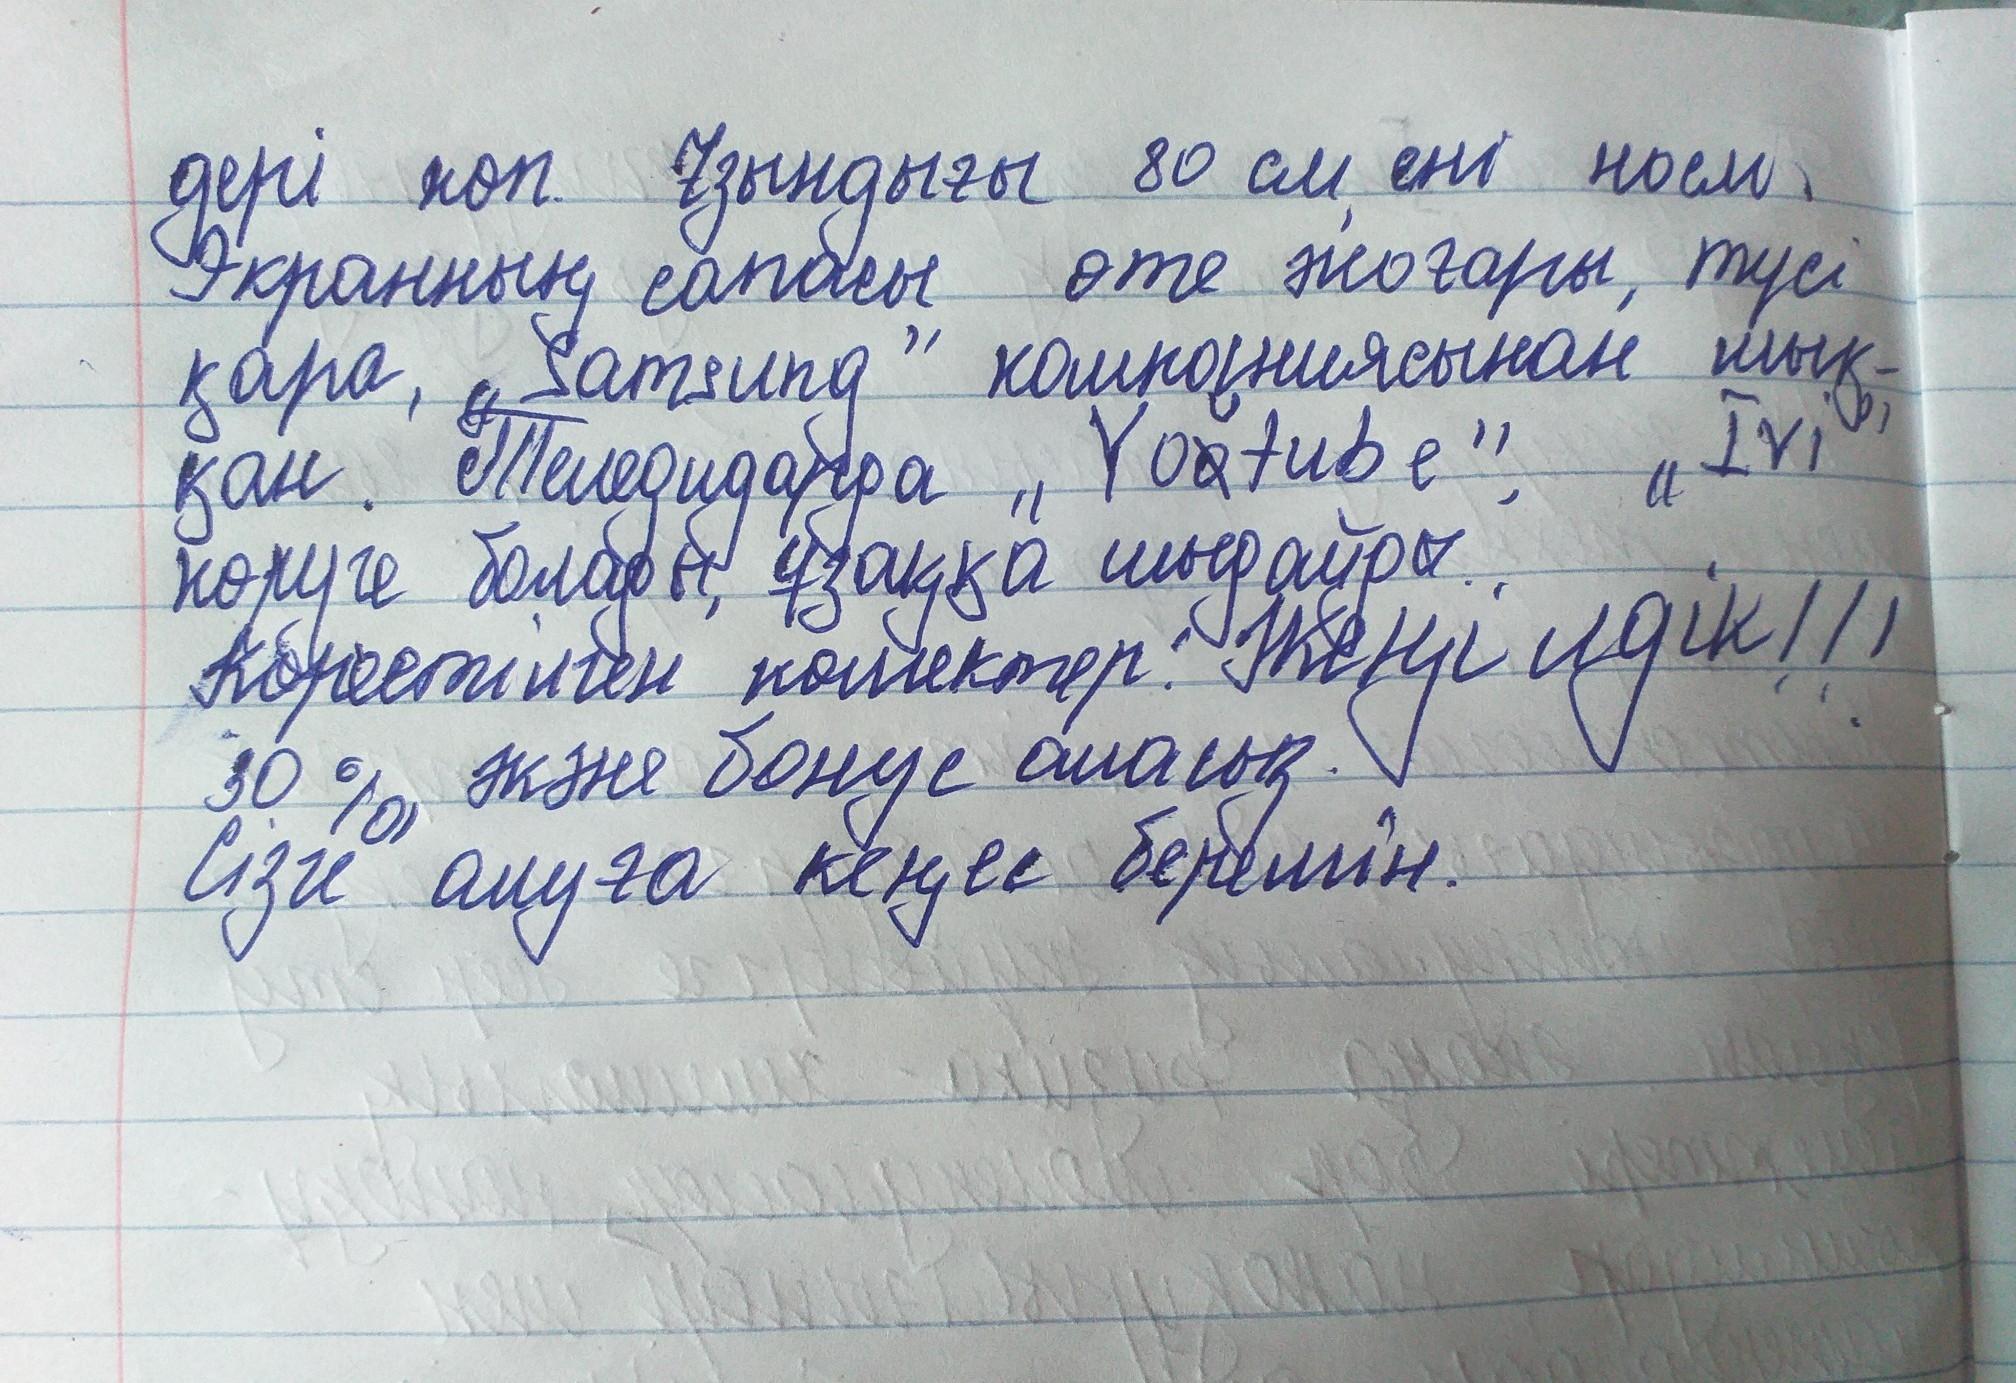 дері көп. Ұзындығы 80 см, ені 40см.
Экранның сапасы өте жоғары, түсі
қара, „Samsung" компаниясынан шық-
қан. Теледидарда „Youtube", „Ivi",
көруге болады, ұзаққа шыдайды.
Көрсетілген көмектер: Жеңілдік!!!
30%, және бонус аласыз.
Сізге алуға кеңес беремін.